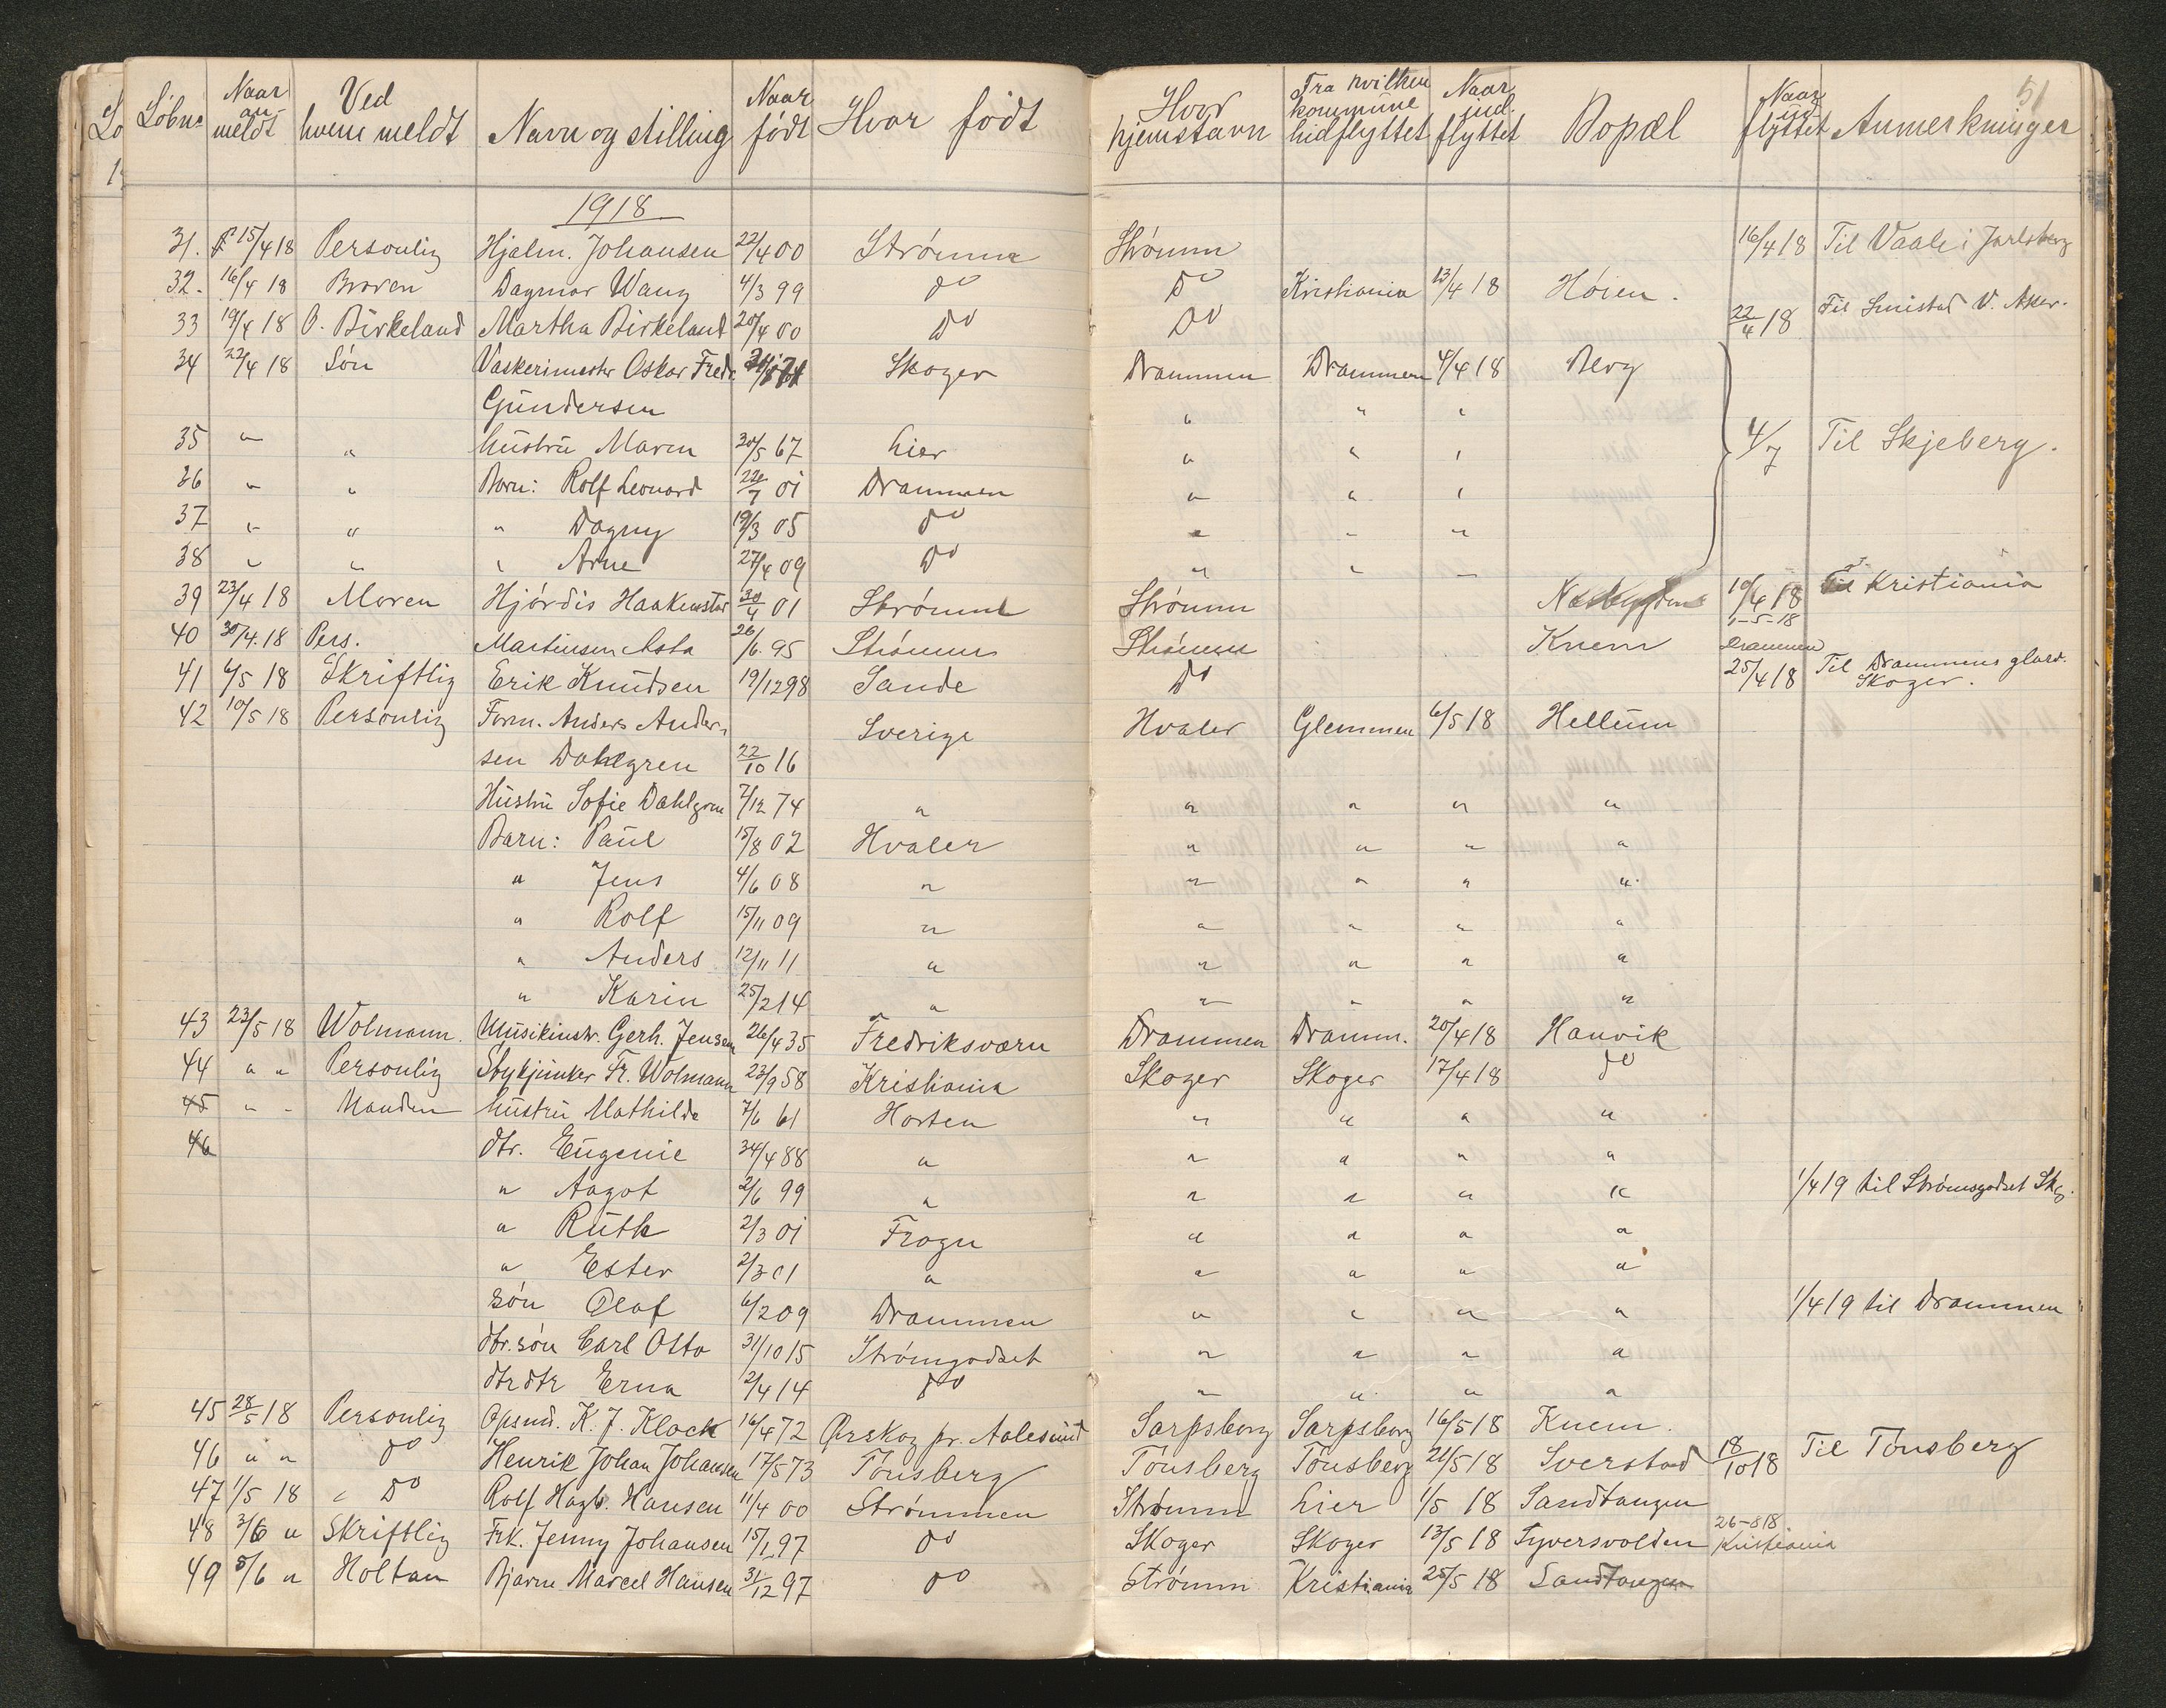 Löbne Naar an- meldt Ved hvem meldt Navn og stilling Naar født Hvor født Hvor hjemstavn Fra hvilken kommune hidflyttet Naar ind- flyttet Bopæl Naar ud- flyttet Anmerkninger 51
1918
31. 15/4 18 Personlig Hjalm. Johansen 22/4 00 Strømm Strømm 16/4 18 Til Vaale i Jarlsberg
32. 16/4 18 Broren Dagmar Wang 4/3 99 do Do Kristiania 13/4 18 Høien.
33 19/4 18 O. Birkeland Martha Birkeland 20/4 00 Do Do 22/4 18 Til V. Aker.
34 22/4 18 Søn Vaskerimester Oskar Fredr. Skoger Drammen Drammen 4/4 18 Berg
Gundersen " " "
35 " " hustru Maren 30/5 67 Lier " " " 4/7 Til Skjeberg.
26 " " Barn: Rolf Leonard 22/7 01 Drammen " " "
37 " " " Dagny 19/3 05 do " " "
38 " " " Arne 27/4 09 Do " " "
39 23/4 18 Moren Hjørdis 30/4 01 Strømm Strømm 10/4 18 Til Kristiania
40 30/4.18 Pers. Martinsen Asta 26/6.95 Strømm Strømm Knem 1-5-18 Drammen
41 6/5 18 Skriftlig Erik Knudsen 19/12 98 Sande Do 25/4 18 Til Drammens glasv. Skoger.
42 10/5 18 Personlig Form. Anders Ander- Sverige Hvaler Glemmen 6/5 18 Hellum
sen Dahlgren 22/10 16
Hustru Sofie Dahlgren 7/12 74 " " " " "
Barn: Paul 15/8 02 Hvaler " " " "
" Jens 4/6 08 " " " " "
" Rolf 15/11 09 " " " " "
" Anders 12/11 11 " " " " "
" Karin 25/2 14 " " " " "
43 23/5 18 Wolmann. Musikinstr. Gerh. Jensen 26/4 35 Fredriksværn Drammen Dramm. 20/4 18 Hanvik
44 " " Personlig Stykjunker Fr. Wolmann 23/9 58 Kristiania Skoger Skoger 17/4 18 do
45 " " Manden hustru Mathilde 7/6 61 Horten " " " "
46 dtr. Eugenie 24/4 88 " " " " "
" Aagot 2/6 99 " " " " " 1/4 19 til Strømsgodset Skg.
" Ruth 2/3 01 Frogn " " " "
" Ester 2/3 01 " " " " "
søn Olaf 6/2 09 Drammen " " " " 1/4 19 til Drammen
dtr.søn Carl Otto 31/10 15 Strømgodset " " " "
dtrdtr Erna 2/4 14 do " " " "
45 28/5 18 Personlig Opsmd. K. J. Klock 16/4 72 Ørskog pr. Aalesund Sarpsborg Sarpsborg 16/5 18 Knem.
46 " " do Henrik Johan Johansen 17/5 73 Tønsberg Tønsberg Tønsberg 21/5 18 Sverstad 18/10 18 Til Tønsberg
47 1/5 18 " Do Rolf Hagb. Hansen 11/4 00 Strømmen Strømm Lier 1/5 18 Sandtangen
48 3/6 " Skriftlig Frk. Jenny Johansen 15/1 97 do Skoger Skoger 13/5 18 Syversvolden 26-8 18 Kristiania
49 5/6 " Holtan Bjarne Marcel Hansen 31/12 97 do Strømm Kristiania 25/5 18 Sandtangen